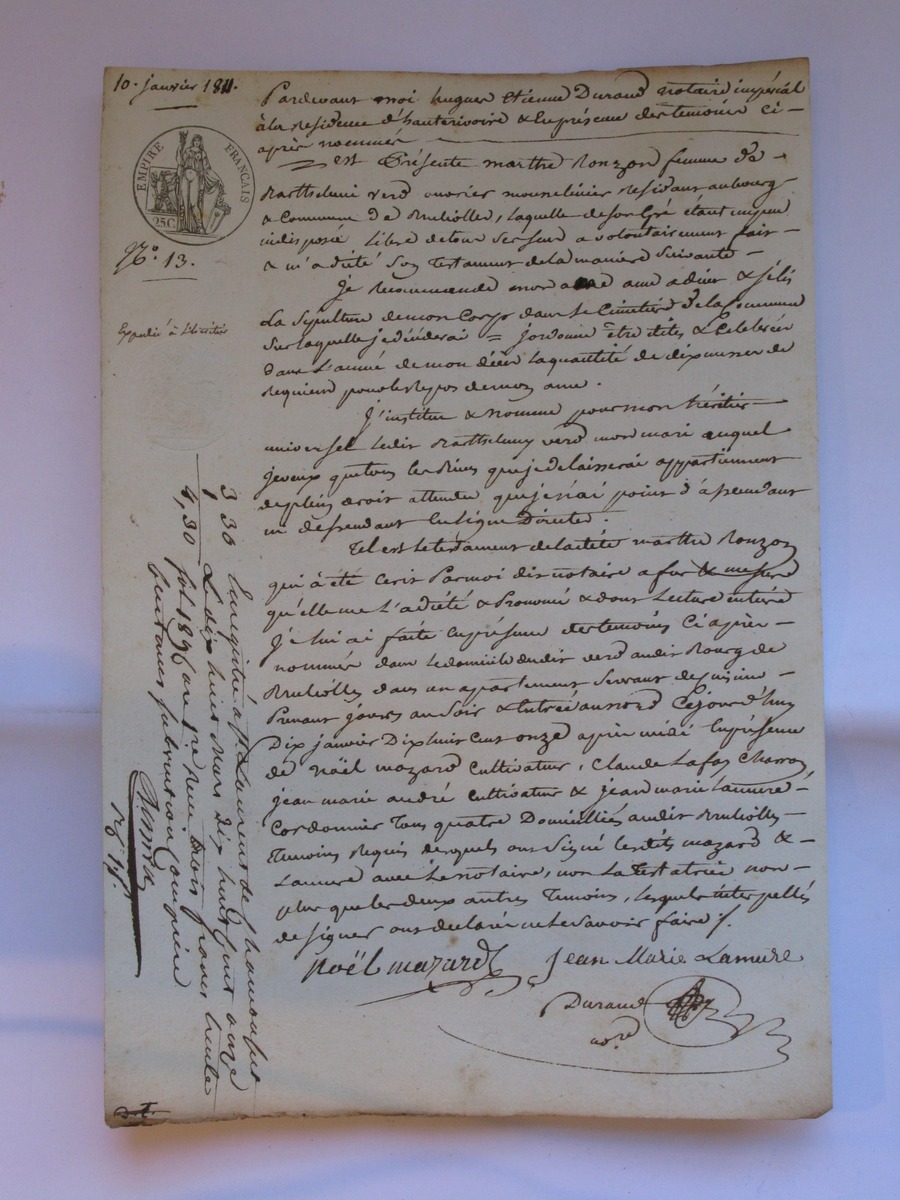 10. janvier 1811.
EMPIRE FRANÇAIS
25C
N.º 13.
Expédié à l'héritier
Pardevant moi hugues Etienne Durand notaire impérial
à la residence d'hauterivoire & en presence des temoins ci-
après nommés
est Présente marthe Ronzon femme de
Barthelmi verd ouvrier mousselinier residant au bourg
& Commune de Brulioles, laquelle de son Gré étant un peu
indisposée libre de tous ses sens a volontairement fait
& m'a dicté Son Testament de la maniere Suivante
Je recommande mon ame a dieu &
La Sepulture de mon Corps dans le Cimetiere de la Commune
Sur laquelle je décéderai = j'ordonne être dites & Celebrées
dans L'année de mon décès la quantité de dix messes de
requiem pour le repos de mon ame.
J'institue & nomme pour mon héritier
universel ledit Barthelemy verd mon mari auquel
je veux que tous les Biens que je delaisserai appartiennent
de plein droit attendu que je n'ai point d'assendant
ni dessendant en Ligne Directe.
Tel est le testament de ladite marthe Ronzon
qui à été écrit Par moi dit notaire a fur & mesure
qu'elle me L'a dicté & Prononcé & dont Lecture entiere
Je lui ai faite en présence des temoins Ci après
nommés dans le domicile dudit verd audit Bourg de
Brulioles dans un appartement Servant de Cuisine
Prenant jours au Soir & Entrée au nord Cejourd'huy
Dix janvier Dix huit Cent onze après midi En présence
de Noël mazard Cultivateur, Claude Lafay Charron
jean marie andré Cultivateur & jean marie Lamure
Cordonnier Tous quatre Domiciliés audit Brulioles
Temoins Requis desquels ont Signé lesdits mazard &
Lamure avec le notaire, non la testatrice non
plus que les deux autres Temoins, lesquels interpellés
de signer ont declaré ne le savoir faire /.
Noël mazard
Jean Marie Lamure
Durand
no.re
3 30
1
4,30
Enregistré à St Laurent de Chamousset
Le dix huit Mars dix huit Cent onze
fol. 189 reçu trois francs trente
centimes subvention comprise